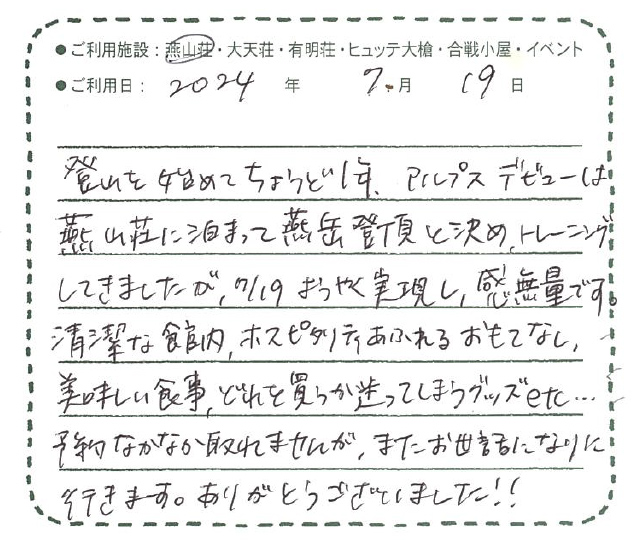 ●ご利用施設：燕山荘・大天荘・有明荘・ヒュッテ大槍・合戦小屋・イベント
●ご利用日： 2024 年 7.月 19 日
登山を始めてちょうど1年、アルプスデビューは
燕山荘に泊まって燕岳登頂と決め、トレーニング
してきましたが、7/19ようやく実現し、感無量です。
清潔な館内、ホスピタリティあふれるおもてなし、
美味しい食事、どれを買うか迷ってしまうグッズetc…
予約なかなか取れませんが、またお世話になりに
行きます。ありがとうございました!!